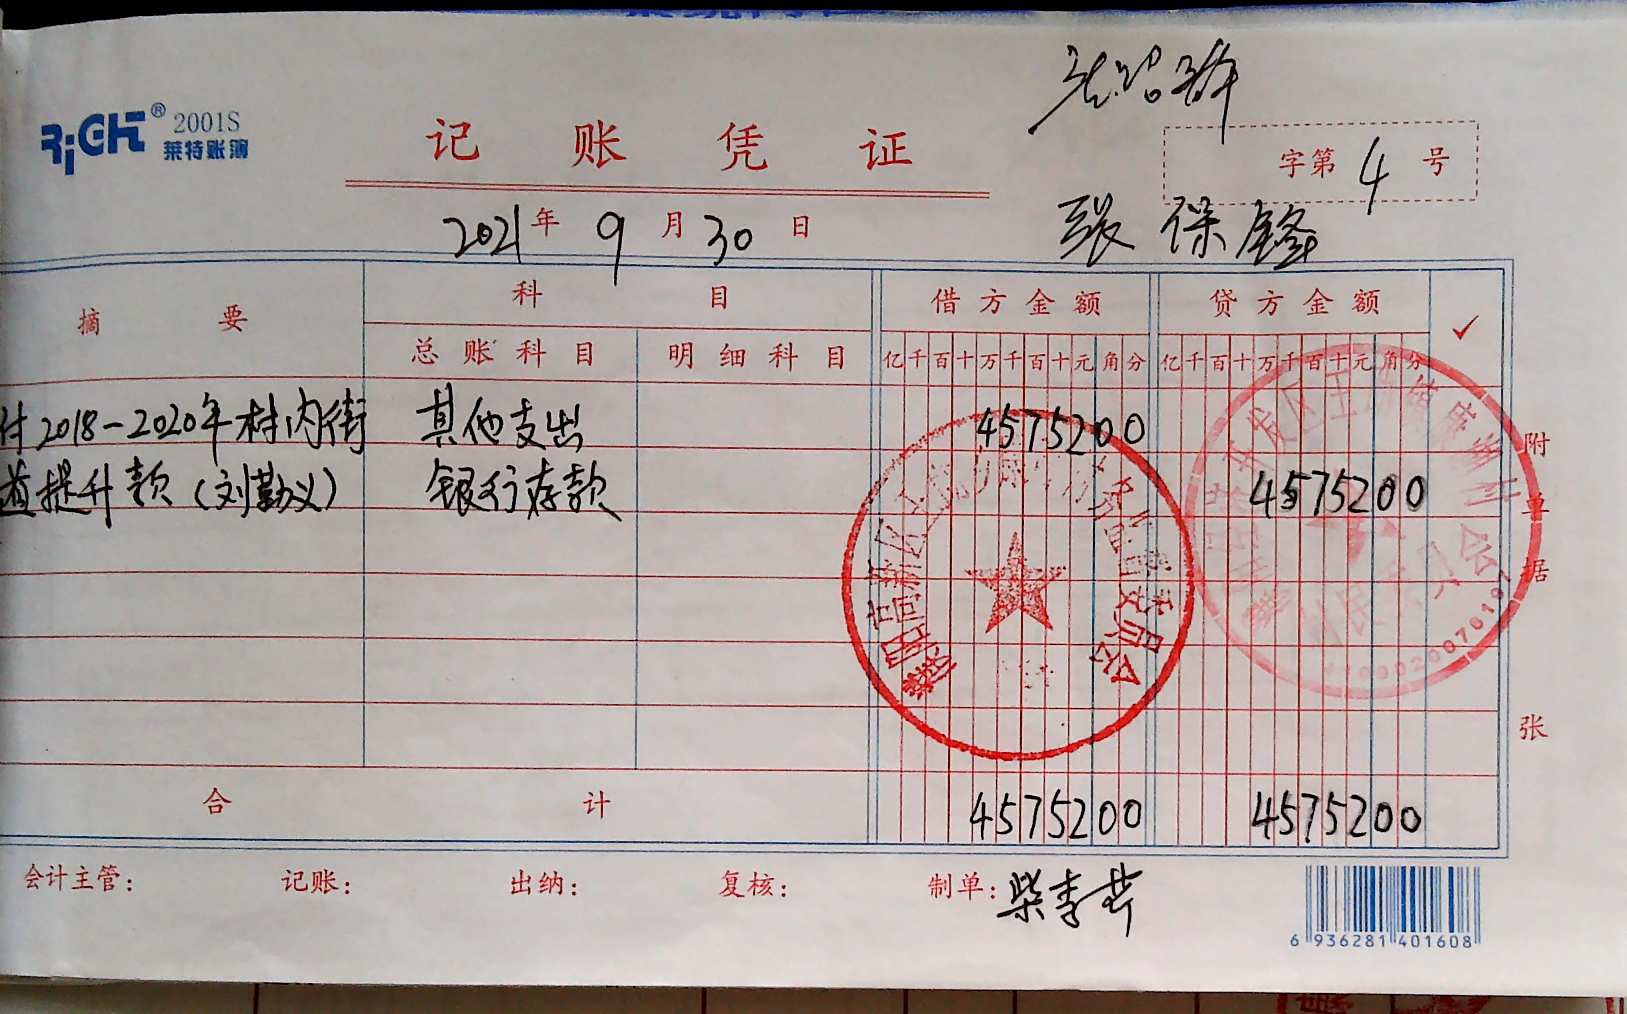 RiGHT® 2001S
莱特账簿
记账凭证
字第4号
张保锋
2021年9月30日
摘要
科目
借方金额
贷方金额
✓
总账科目
明细科目
亿千百十万千百十元角分
亿千百十万千百十元角分
付2018-2020年村内街
其他支出
4575200
道提升款(刘勤义)
银行存款
4575200
附单据 张
合计
4575200
4575200
会计主管:
记账:
出纳:
复核:
制单:
6 936281 401608